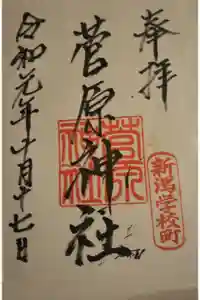 奉拝
新潟学校町
菅原神社
菅原神社
令和元年十月十七日